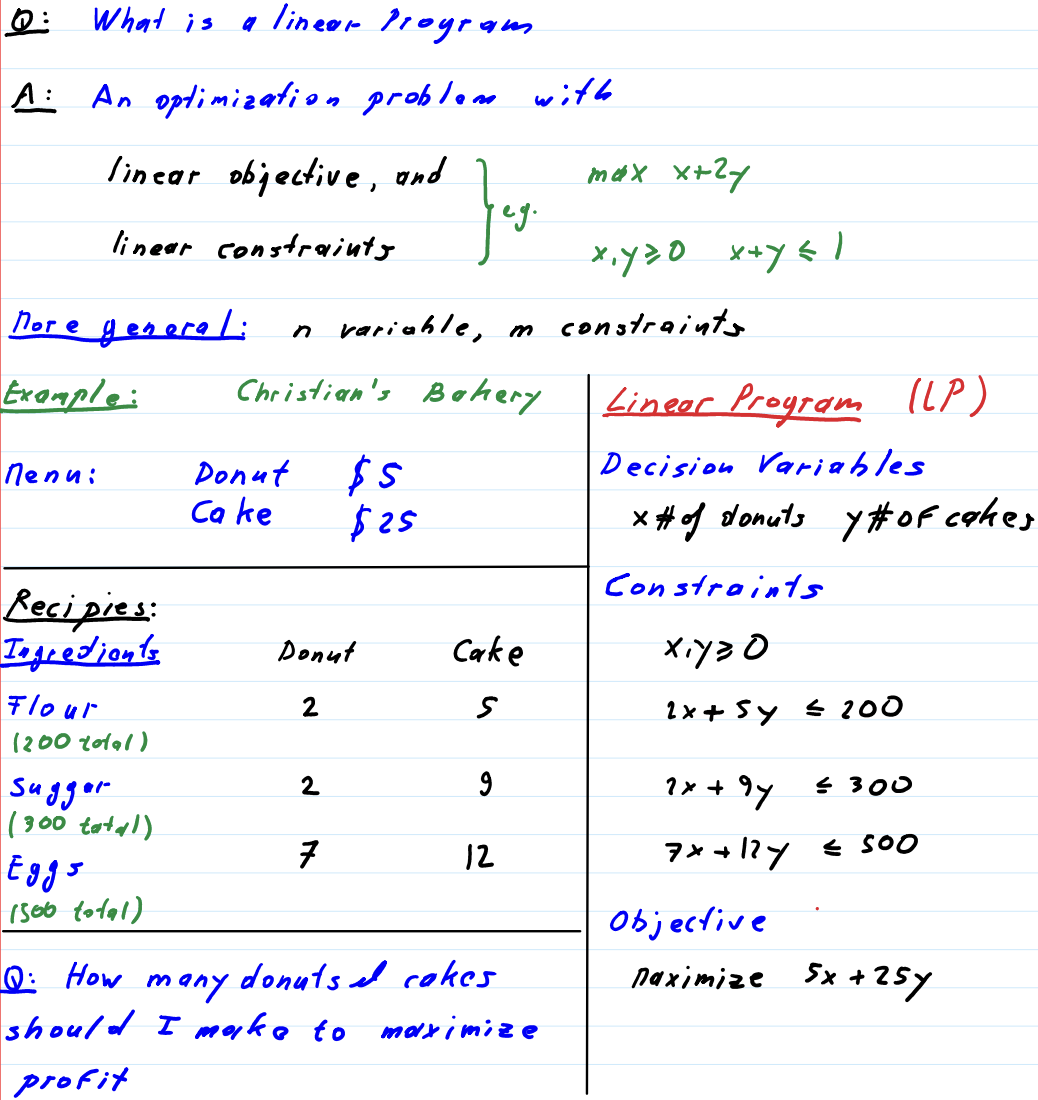 Q: What is a linear Program
A: An optimization problem with
linear objective, and
linear constraints
e.g.
max x+2y
x,y≥0 x+y≤1
More general: n variable, m constraints
Example: Christian's Bakery
Menu: Donut $5
Cake $25
Recipies:
Ingredients Donut Cake
Flour 2 5
(200 total)
Suggar 2 9
(300 total)
Eggs 7 12
(500 total)
Q: How many donuts & cakes
should I make to maximize
profit
Linear Program (LP)
Decision Variables
x # of donuts y # of cakes
Constraints
x,y≥0
2x + 5y ≤ 200
2x + 9y ≤ 300
7x + 12y ≤ 500
Objective
Maximize 5x + 25y